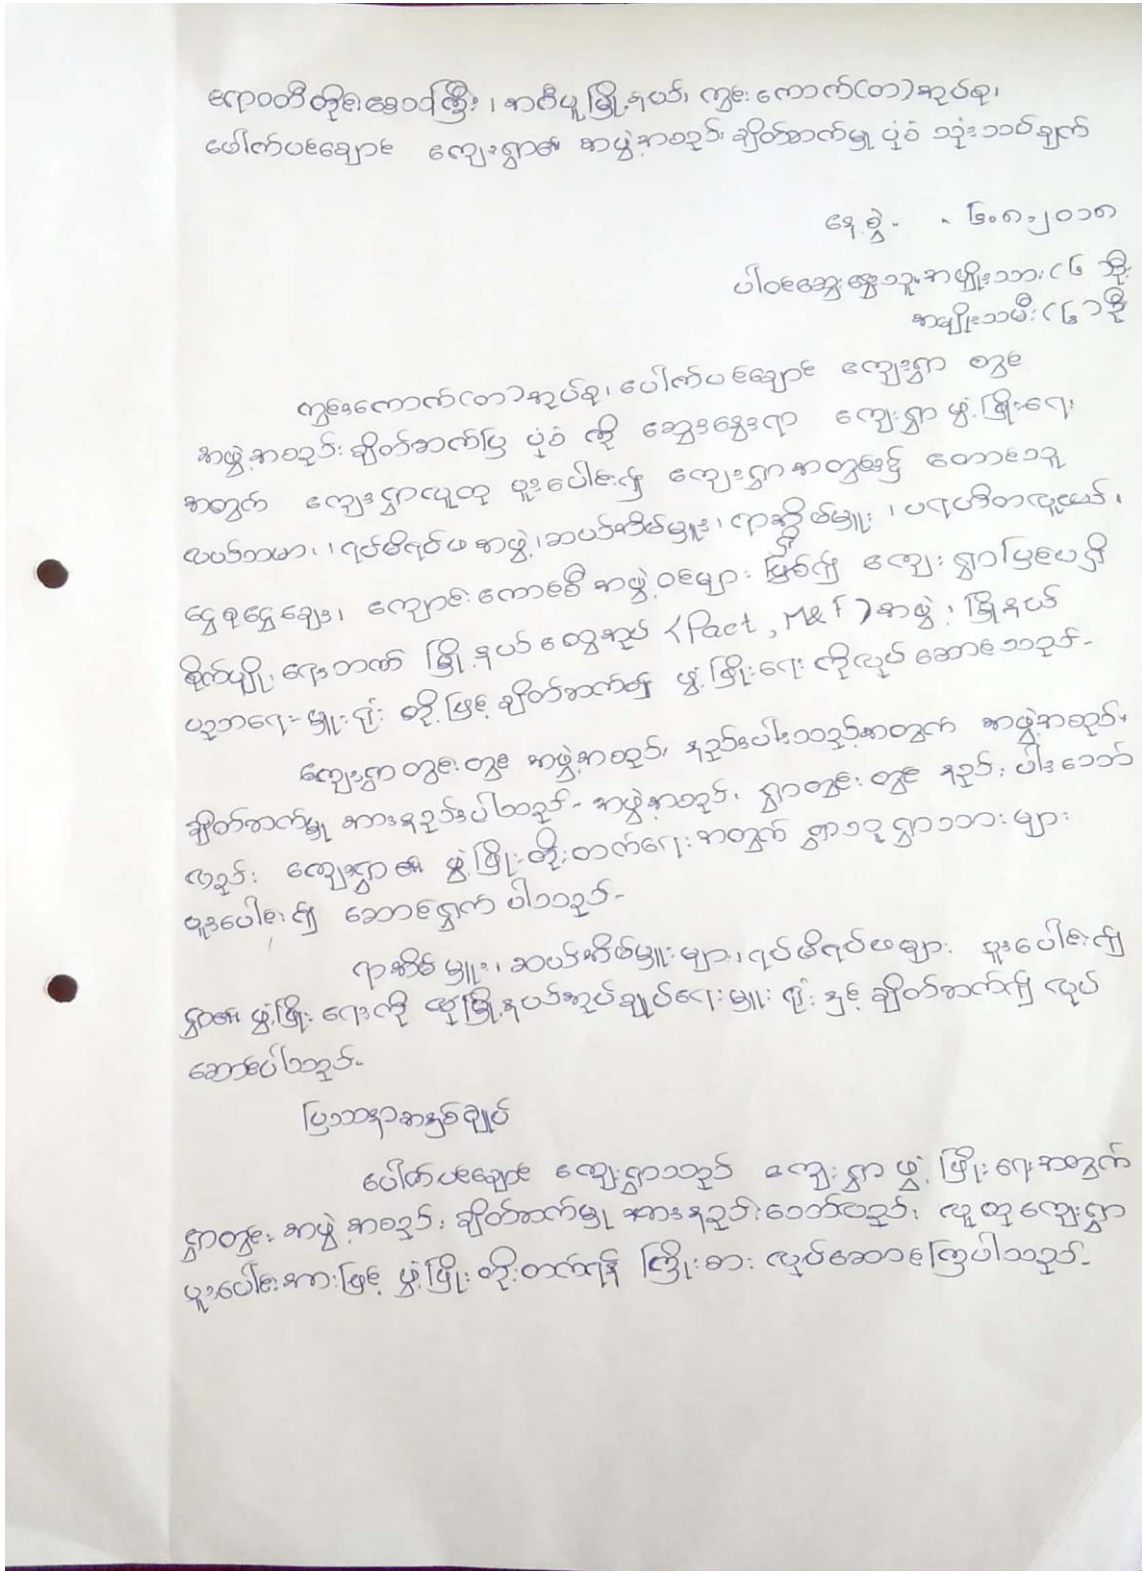 ဧရာဝတီတိုင်းဒေသကြီး၊ အင်္ဂပူမြို့နယ်၊ ကွင်းကောက်(တ)အုပ်စု၊
ပေါက်ပင်ချောင်း ကျေးရွာ၏ အဖွဲ့အစည်း ချိတ်ဆက်မှု ပုံစံ သုံးသပ်ချက်
နေ့စွဲ - ၆.၈.၂၀၁၈
ပါဝင်ဆွေးနွေးသူ အမျိုးသား (၆) ဦး
အမျိုးသမီး (၆) ဦး
ကွင်းကောက်(တ)အုပ်စု၊ ပေါက်ပင်ချောင်း ကျေးရွာ တွင်
အဖွဲ့အစည်း ချိတ်ဆက်ပြ ပုံစံ ကို ဆွေးနွေးရာ ကျေးရွာ ဖွံ့ဖြိုးရေး
အတွက် ကျေးရွာလူထု ပူးပေါင်း၍ ကျေးရွာအတွင်း၌ တောင်သူ
လယ်သမား၊ ရပ်မိရပ်ဖ အဖွဲ့၊ ဆယ်အိမ်မှူး၊ ရာအိမ်မှူး၊ ပရဟိတလူငယ်၊
ငွေစုငွေချေး၊ ကျောင်းကောင်စီ အဖွဲ့ဝင်များ ဖြစ်၍ ကျေးရွာပြင်ပရှိ
စိုက်ပျိုးရေးဘဏ် မြို့နယ် ထွေအုပ် (Pact, M&F) အဖွဲ့၊ မြို့နယ်
ပညာရေးမှူးရုံး တို့ဖြင့် ချိတ်ဆက်၍ ဖွံ့ဖြိုးရေး ကိုလုပ် ဆောင်သည်-
ကျေးရွာ တွင်းတွင် အဖွဲ့အစည်း နည်းပါးသည့်အတွက် အဖွဲ့အစည်း
ချိတ်ဆက်မှု အားနည်းပါသည်- အဖွဲ့အစည်း ရွာတွင်း တွင် နည်းပါးသော်
လည်း ကျေးရွာ၏ ဖွံ့ဖြိုးတိုးတက်ရေး အတွက် ရွာသူရွာသားများ
ပူးပေါင်း၍ ဆောင်ရွက် ပါသည်-
ရာအိမ်မှူး၊ ဆယ်အိမ်မှူးများ၊ ရပ်မိရပ်ဖများ ပူးပေါင်း၍
ရွာ၏ ဖွံ့ဖြိုးရေးကို မြို့နယ်အုပ်ချုပ်ရေးမှူးရုံး နှင့် ချိတ်ဆက်၍ လုပ်
ဆောင်ပါသည်-
ပြဿနာအနှစ်ချုပ်
ပေါက်ပင်ချောင်း ကျေးရွာသည် ကျေးရွာ ဖွံ့ဖြိုးရေးအတွက်
ရွာတွင်း အဖွဲ့အစည်း ချိတ်ဆက်မှု အားနည်းသော်လည်း လူထုကျေးရွာ
ပူးပေါင်းအားဖြင့် ဖွံ့ဖြိုးတိုးတက်ရန် ကြိုးစား လုပ်ဆောင်ကြပါသည်-